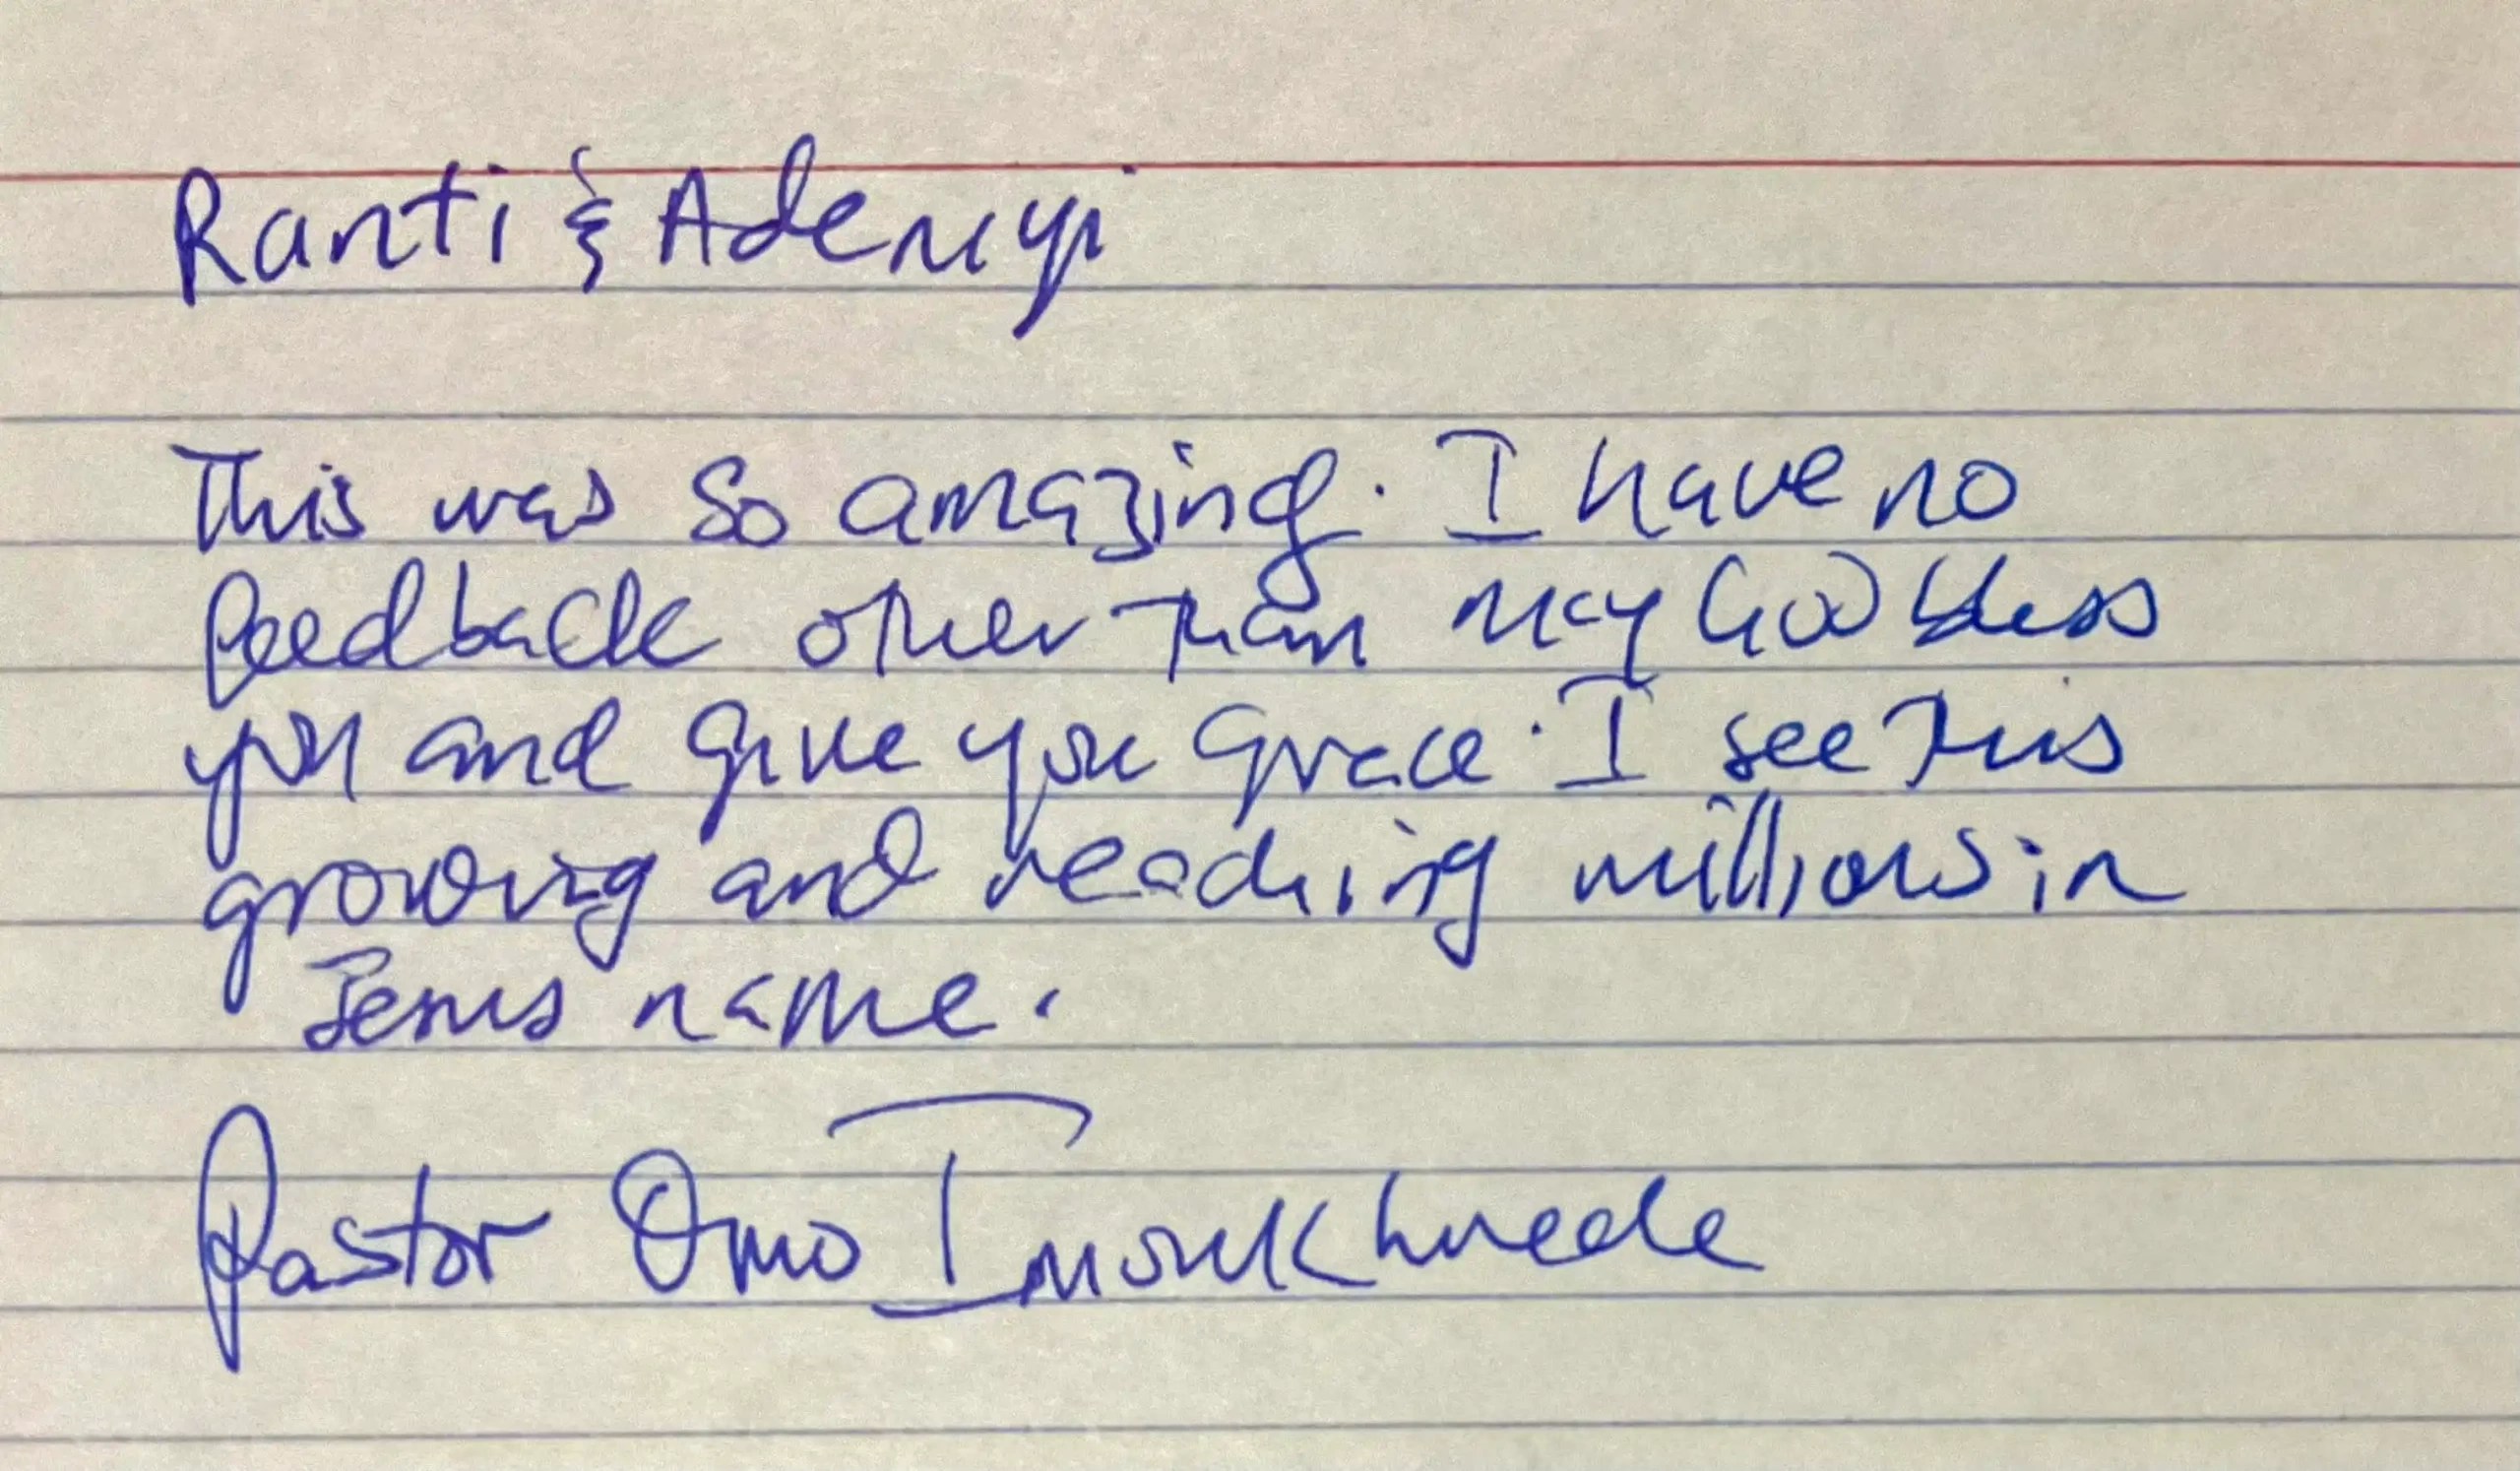 Ranti & Adeniyi
This was so amazing. I have no
feedback other than may God bless
you and give you Grace. I see this
growing and reaching millions in
Jesus name.
Pastor Omo Imoukhuede